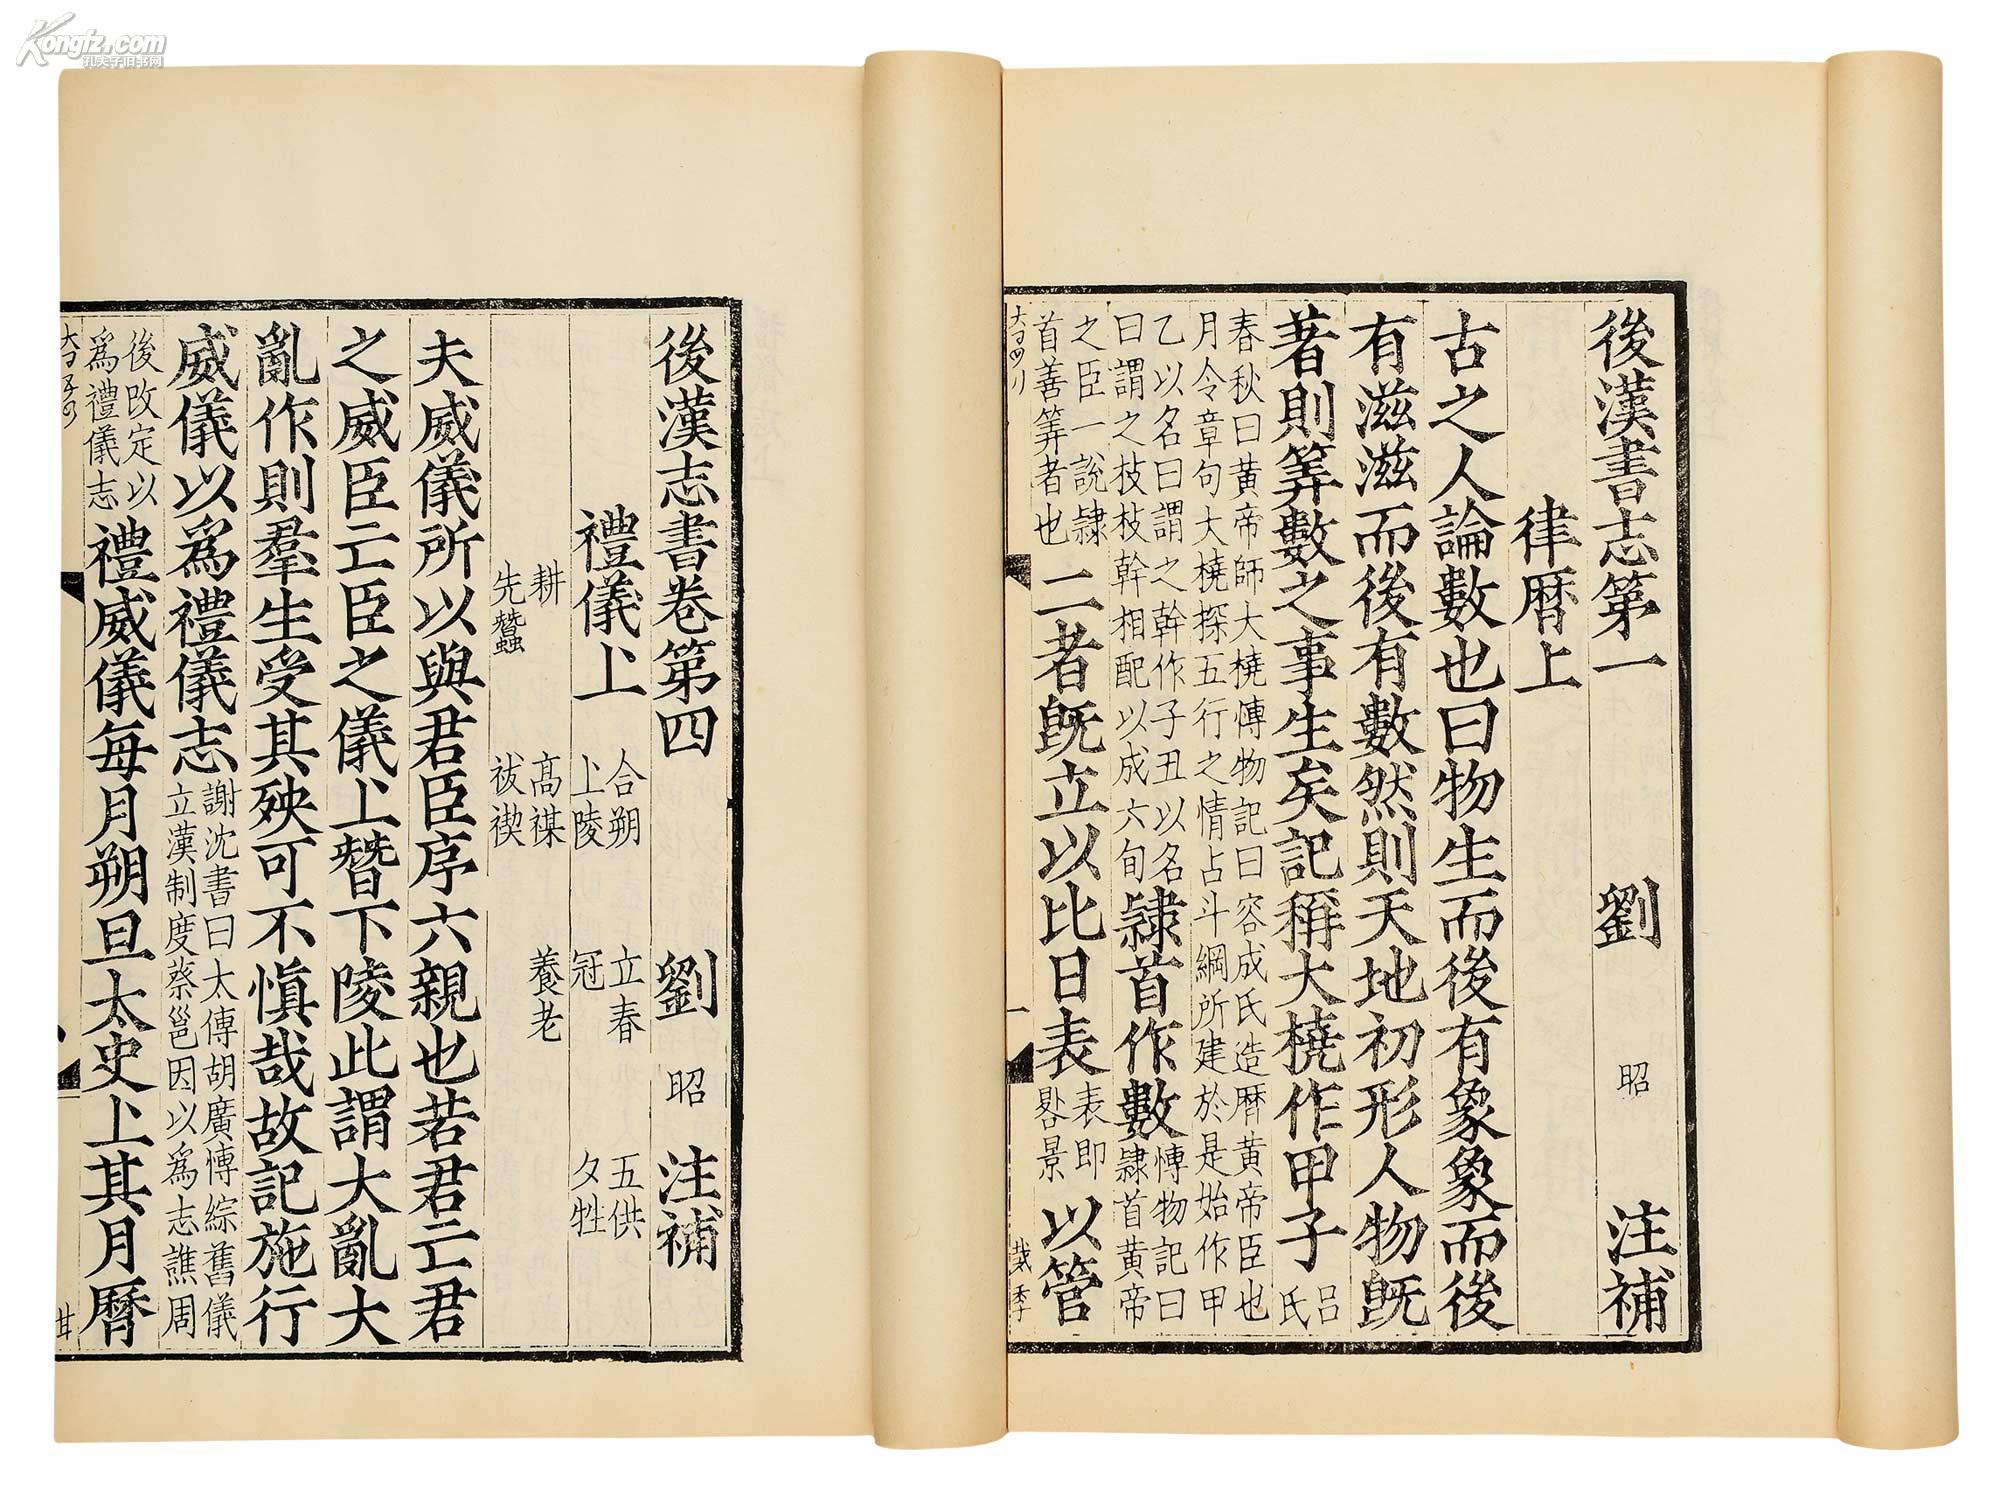 Kongfz.com
孔夫子旧书网
後漢書志第一　劉　昭　注補
律曆上
古之人論數也曰物生而後有象象而後
有滋滋而後有數然則天地初形人物旣
著則筭數之事生矣記稱大橈作甲子
呂
氏
春秋曰黃帝師大橈博物記曰容成氏造曆黃帝臣也
月令章句大橈探五行之情占斗綱所建於是始作甲
乙以名日謂之幹作子丑以名
日謂之枝枝幹相配以成六旬
隷首作數
博物記曰
隷首黃帝
之臣一說隷
首善筭者也
二者旣立以比日表
表即
晷景
以管
大四
一
後漢志書卷第四　劉　昭　注補
禮儀上
合朔　立春　五供
上陵　冠　夕牲
耕　高禖　養老
先蠶　祓禊
夫威儀所以與君臣序六親也若君亡君
之威臣亡臣之儀上替下陵此謂大亂大
亂作則羣生受其殃可不慎哉故記施行
威儀以爲禮儀志
謝沈書曰太傅胡廣博綜舊儀
立漢制度蔡邕因以爲志譙周
後改定以
爲禮儀志
禮威儀每月朔旦太史上其月曆